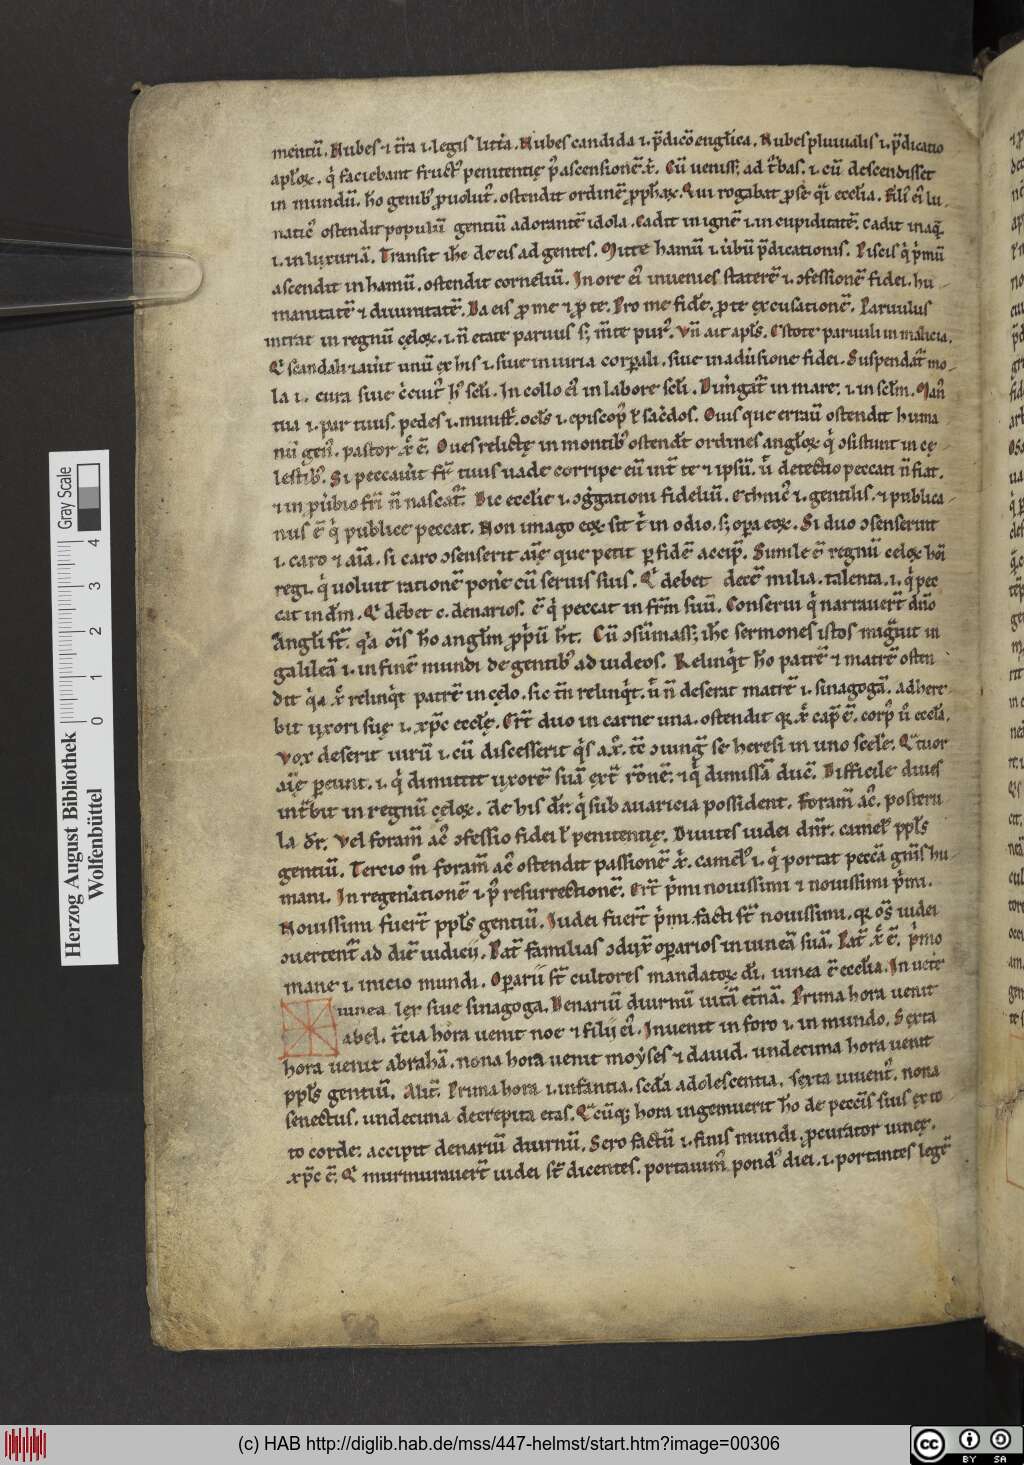 mentū. Nubes ⁊ t̄ra .i. legis litt̄a. Nubes candida .i. p̄dicō eng̃lica. Nubes pluuialis .i. p̄dicatio
apl̄oꝝ. q̇ faciebant fruct᷒ penitentię p᷒ ascensionē .x̄. Cū ueniss; ad t̄bas. i. cū descendisset
in mundū. h̄o genib᷒ ꝓuolut᷒. ostendit ordinē ꝓph̄aꝝ. Qui rogabat ꝓ se q̄i ecclīa. Fili᷒ ei᷒ lu
natic᷒ ostendit populū gentiū adorantē idola. Cadit in ignē .i. in cupiditatē. Cadit in aq̄.
.i. in luxuriā. Transit ih̄c de eis ad gentes. Mitte hamū .i. ūbū p̄dicationis. Piscis q̇ p̄mū
ascendit in hamū. ostendit corneliū. In ore ei᷒ inuenies staterē .i. ɔfessionē fidei. hu
manitatē ⁊ diuinitatē. Da eis ꝓ me ⁊ ꝓ te. Pro me fidē. ꝓ te excusationē. Paruulus
intrat in regnū cęloꝝ. i. n̄ etate paruus s; m̄te pur᷒. Vn̄ ait apl̄s. Estote paruuli in malicia.
Q̇ scandaliꝫauīt unū ex his .i. siue iniuria corꝑali. siue inaduīsione fidei. Suspendat᷑ mo
la .i. cura siue c̄cuit᷒ h᷒ sc̄li. In collo ei᷒ in labore sc̄li. Dim̄gat᷑ in mare. i. in sc̄lm. Man᷒
tua .i. par tuus. pedes .i. minist̄. ocl̄s .i. episcop᷒ ł sac̄dos. Ouis que errau᷑ ostendit huma
nū gen᷒. pastor x̄ ē. Oues relictę in montib᷒ ostendt̄ ordines angl̄oꝝ q̇ ɔsistunt in cę
lestib᷒. Si peccauīt fr̄ tuus uade corripe eū int̄ te ⁊ ipsū. ū detectio peccati n̄ fiat.
⁊ in pub̄lico fr̄i n̄ nascat᷑. Dic ecclīe .i. ɔggationi fideliū. Ethnic᷒ .i. gentilis. ⁊ publica
nus ē q̇ publice peccat. Non imago eoꝝ sit t̄ in odio. s; oꝑa eoꝝ. Si duo ɔsenserint
.i. caro ⁊ aīa. si caro ɔsenserit aīę que petit ꝑ fidē accip̄. Simile ē regnū celoꝝ hōi
regi. q̇ uoluit rationē pon̄e cū seruis suis. Q̇ debet decē milia talenta. i. q̇ pec
cat in dm̄. Q̇ debet c. denarios. ē q̇ peccat in frm̄ suū. Conserui q̇ narrauer̄t dn̄o
Angl̄i st̄. q̇a oīs h̄o angl̄m ꝓpriū h̄t. Cū ɔsūmass; ih̄c sermones istos mig̃uit in
galileā .i. in finē mundi de gentib᷒ ad iudeos. Relinq̇t h̄o patrē ⁊ matrē osten
dit q̇a x̄ relinq̇t patrē in cęlo. sic tn̄ relinq̇t. ū n̄ deserat matrē .i. sinagogā. adhere
bit uxori suę .i. xp̄c ecclę̄. Er̄t duo in carne una. ostendit qꝛ x̄ cap᷒ ē. corp᷒ ū eccla̅.
Vox deserit uirū .i. cū discesserit q̇s a x̄. tc̄ ɔiung̃ se heresi in uno scele̅. Quatuor
aīę ꝑeunt. i. q̇ dimittit uxorē suā ext̄ r̄onē. ⁊ q̇ dimissā duc̄. Difficile diues
int̄bit in regnū cęloꝝ. de his dr̄. q̇ sub auaricia possident. Foram̄ ac᷒. posteru
la dr̄. vel foram̄ ac᷒ ɔfessio fidei ł penitentię. Diuites iudei dn̄r. camel᷒ ppl̄s
gentiū. Tercio m̄ foram̄ ac᷒ ostendit passionē x̄. camel᷒ .i. q̇ portat peccā gn̄is hu
mani. In regen̄ationē .i. p᷒ resurrectionē. Er̄t p̄mi nouissimi ⁊ nouissimi p̄mi.
Nouissimi fuer̄t ppl̄s gentiū. Iudei fuer̄t p̄mi. facti st̄ nouissimi. qꝛ oc̄s iudei
ɔuertent᷑ ad diē iudicij. Pat̄ familias ɔdux̄ oꝑarios in uineā suā. Pat̄ x̄ ē. p̄mo
mane .i. inicio mundi. Oꝑarii st̄ cultores mandatoꝝ dī. uinea ē ecclīa. In uete
uinea. lex siue sinagoga. Denariū diurnū uitā etn̄ā. Prima hora uenit
abel. t̄cia hora uenit noe ⁊ filij ei᷒. Inuenit in foro .i. in mundo. Sexta
hora uenit abrahā. nona hora uenit moyses ⁊ dauid. undecima hora uenit
ppl̄s gentiū. Alit̄. Prima hora .i. infantia. scd̄a adolescentia. sexta iuuent᷒. nona
senectus. undecima decrepita etas. Q̄cūq; hora ingemuerit h̄o de pecc̄is suis ex to
to corde. accipit denariū diurnū. Sero factū .i. finis mundi. ꝓcurator uineę.
xp̄c ē. Q̇ murmurauer̄t iudei st̄ dicentes. portauim᷒ pond᷒ diei. i. portantes legē
Herzog August Bibliothek
Wolfenbüttel
0 1 2 3 4
Gray Scale
(c) HAB http://diglib.hab.de/mss/447-helmst/start.htm?image=00306
cc BY SA